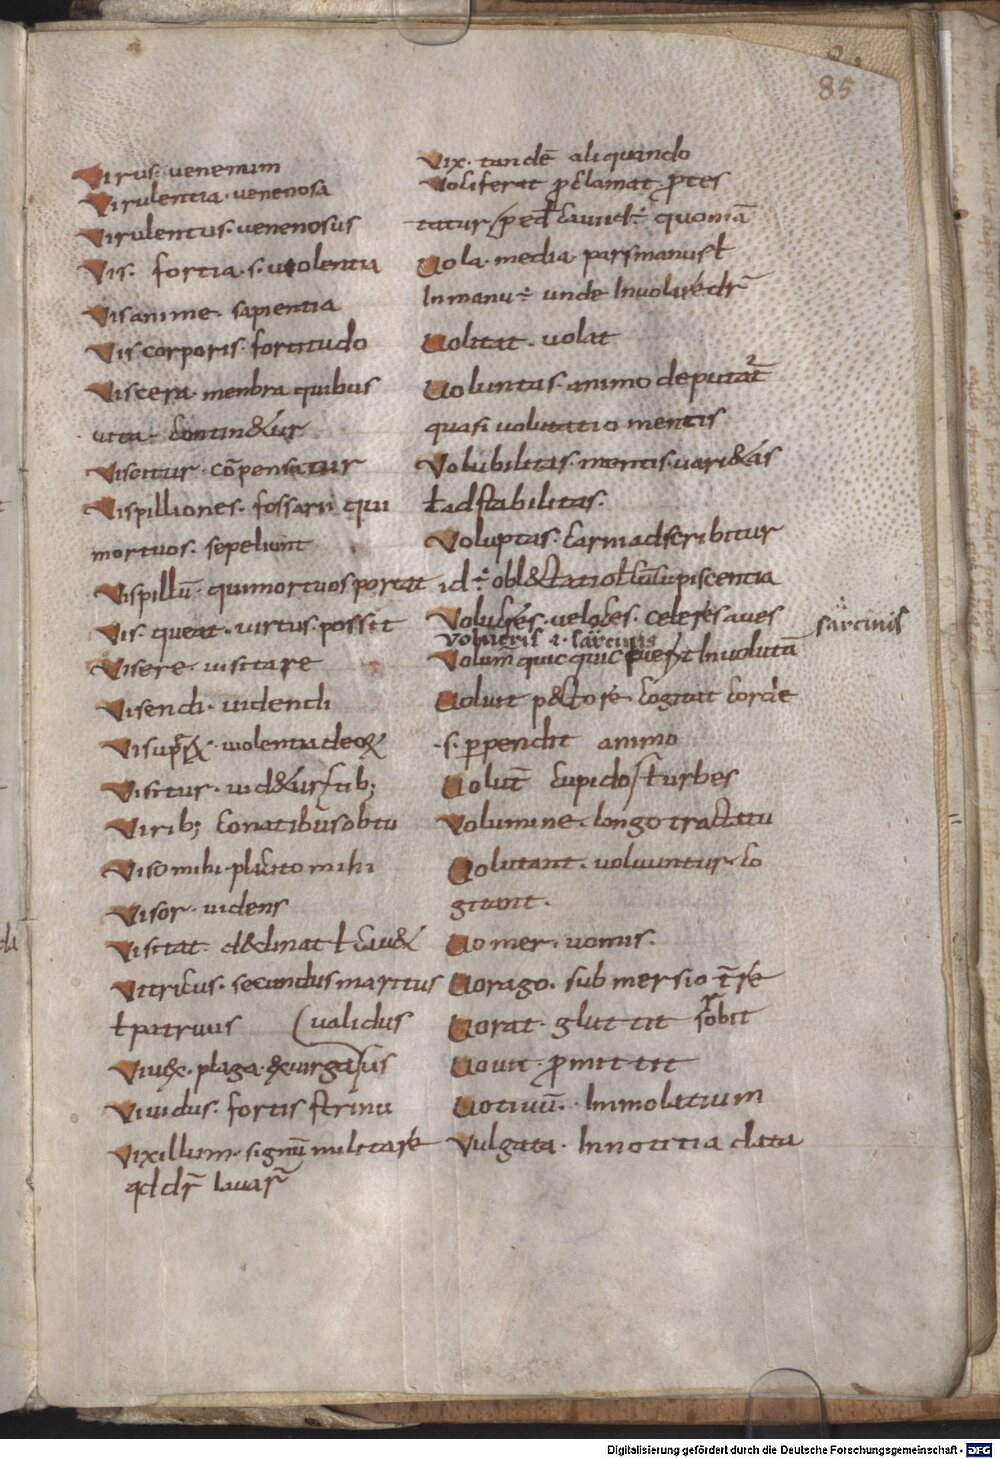 85
Virus· venenum
Virulentia· venenosa
Virulentus· venenosus
Vis· fortia· s· uiolentia
Vis anime· sapientia
Vis corporis· fortitudo
Viscera· menbra quibus
uita· contin&ur
Viscitur· cōpensatur
Vispilliones· fossarii qui
mortuos· sepeliunt
Vispillū· qui mortuos portat
Vis· queat· uirtus· possit
Visere· uisitare
Visendi· uidendi
uiolentia deoꝝ
Visitur· uid&ur
Virib; conatibus
Viso mihi· placito mihi
Visor· uidens
Visitat· d&clinat ł cau&
Vitricus· secundus maritus
ł patruus (ualidus
plaga·
Viuidus· fortis
Vixillum· signū militare
qd dr̄
Vix· tandē aliquando
Vociferat ꝓclamat·
quoniā
Uola· media· pars manus ł
In manu÷ unde Inuolare dr̄
Uolitat· uolat
Uoluntas· animo deputat̄
quasi uolutatio mentis
Volubilitas· mentis· uari&as
ł adstabilitas·
Voluptas· carni adscribitur
id÷ obl&tatio ł cūcupiscentia
Volucres· ueloces· celeres aues
sarcinis
Volum̄ quic quic Inuolutā
sarcinis
Uoluit pectore· cogitat corde
·s· ꝑpendit animo
Uolut̄ cupido
Volumine· longo tractatu
Uolutant· uoluuntur· co
gitant·
Uomer· uomis·
Uorago· submersio t̄re
Uorat· gluttit sorbit
Uouit· ꝓmittit
Uotiuū· Immolatium
Vulgata· In notitia data
Digitalisierung gefördert durch die Deutsche Forschungsgemeinschaft - DFG